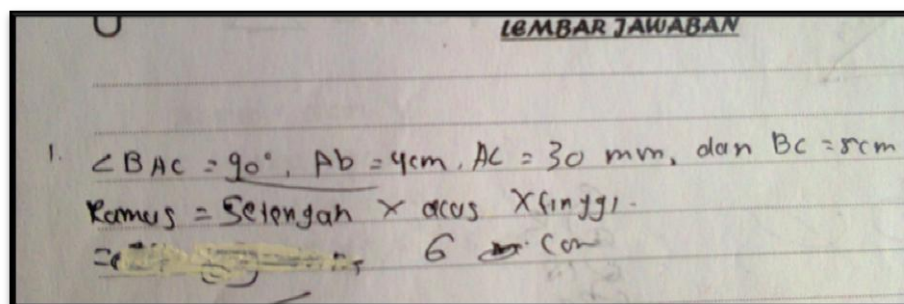 LEMBAR JAWABAN
1. ∠BAC = 90°, Ab = 4cm, AC = 30 mm, dan BC = 5cm
Rumus = Setengah x alas x tinggi.
= 6 cm